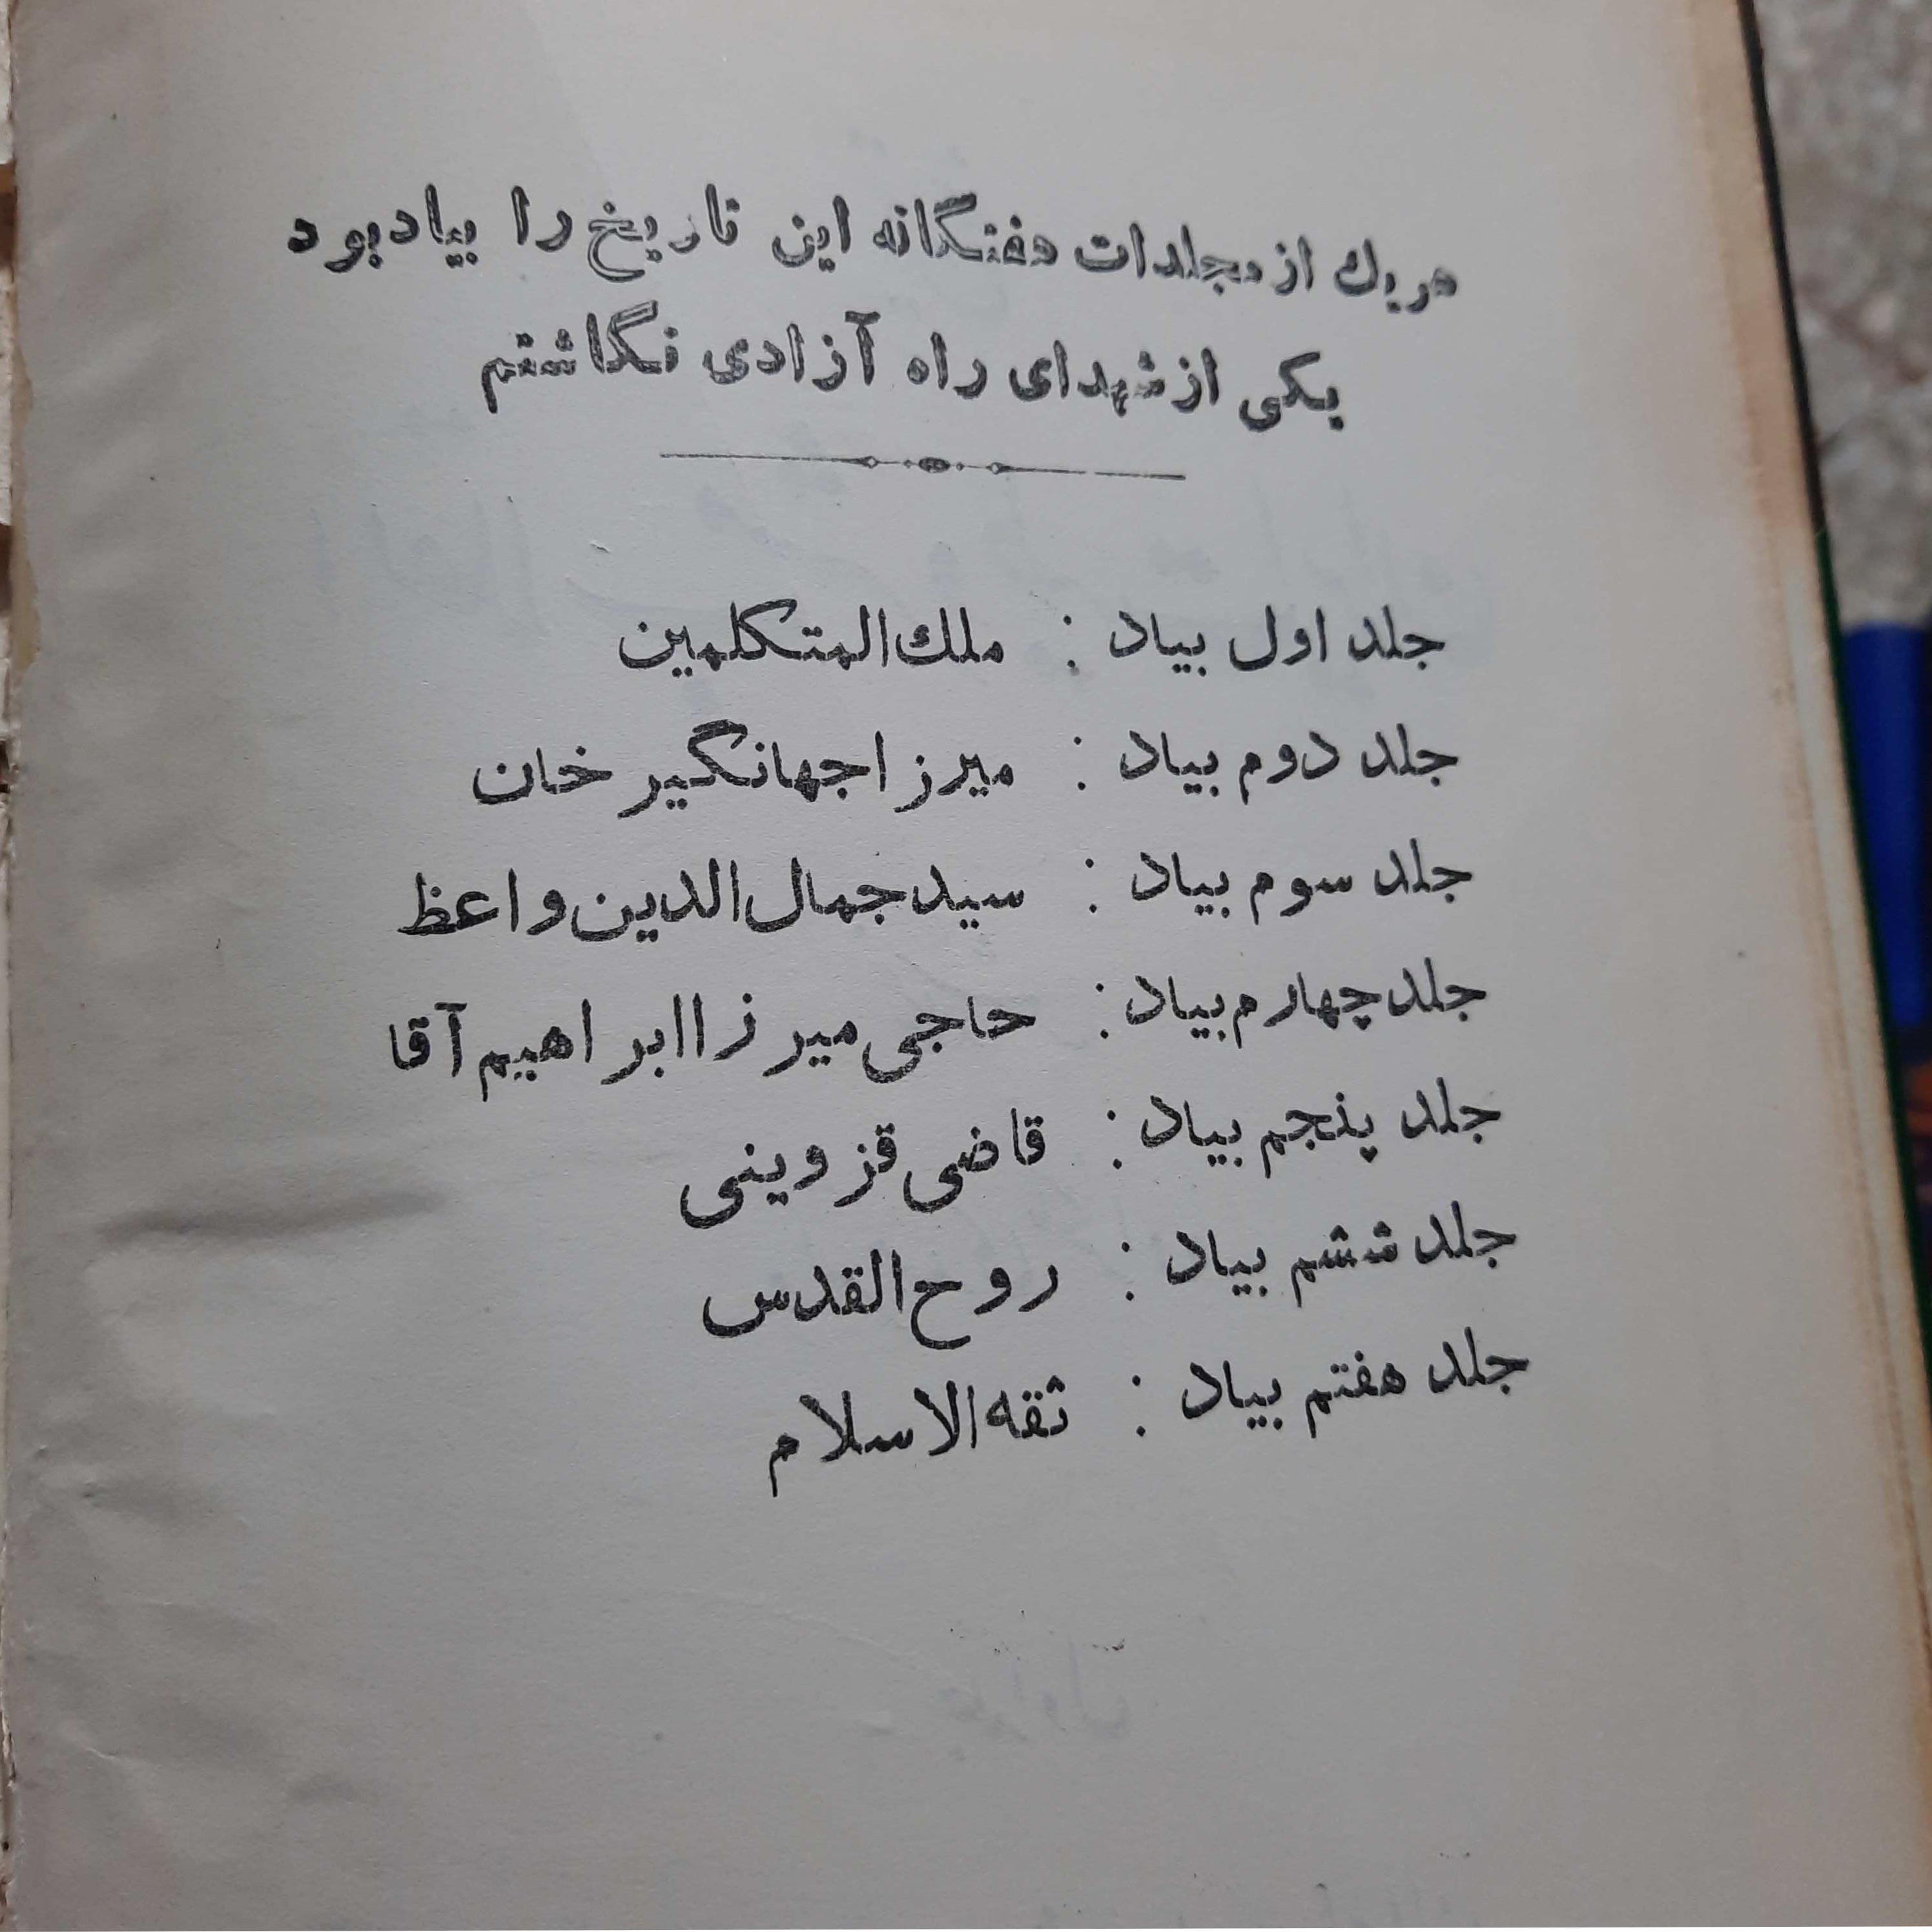 هریك از مجلدات هفتگانه این تاریخ را بیادبود
یکی از شهدای راه آزادی نگاشتم
جلد اول بیاد : ملك‌المتکلمین
جلد دوم بیاد : میرزا جهانگیر خان
جلد سوم بیاد : سید جمال‌الدین واعظ
جلد چهارم بیاد : حاجی میرزا ابراهیم آقا
جلد پنجم بیاد : قاضی قزوینی
جلد ششم بیاد : روح‌القدس
جلد هفتم بیاد : ثقه‌الاسلام